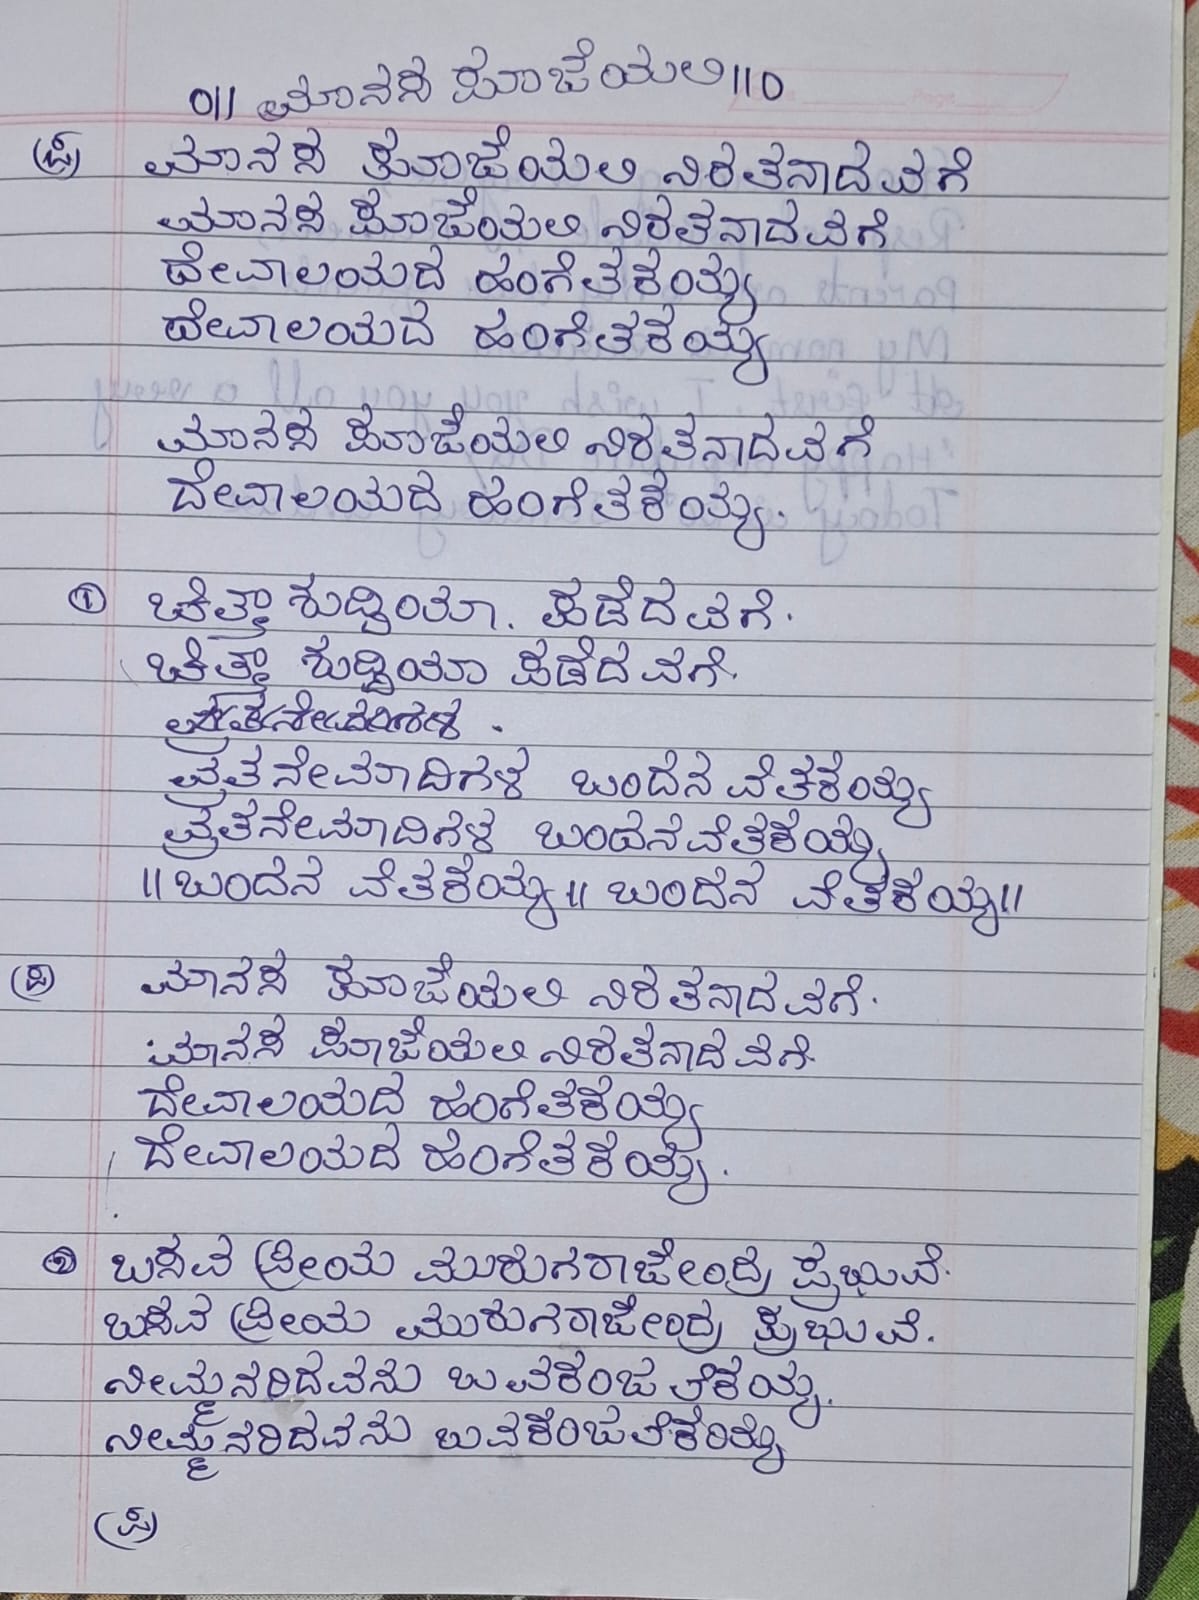 ೦|| ಮಾನಸ ಪೂಜೆಯಲಿ ||೦
(ಪ) ಮಾನಸ ಪೂಜೆಯಲಿ ನಿರತನಾದವಗೆ
ಮಾನಸ ಪೂಜೆಯಲಿ ನಿರತನಾದವಗೆ
ದೇವಾಲಯದ ಹಂಗೆತಕೆಯ್ಯ
ದೇವಾಲಯದ ಹಂಗೆತಕೆಯ್ಯ
ಮಾನಸ ಪೂಜೆಯಲಿ ನಿರತನಾದವಗೆ
ದೇವಾಲಯದ ಹಂಗೆತಕೆಯ್ಯ.
① ಚಿತ್ತಾ ಶುದ್ಧಿಯಾ. ಪಡೆದವಗೆ.
ಚಿತ್ತಾ ಶುದ್ಧಿಯಾ ಪಡೆದವಗೆ.
ವ್ರತನೇಮಾದಿಗಳ ಬಂದೆನವೆತಕೆಯ್ಯ
ವ್ರತನೇಮಾದಿಗಳ ಬಂದೆನವೆತಕೆಯ್ಯ
||ಬಂದೆನ ವೆತಕೆಯ್ಯ|| ಬಂದೆನ ವೆತಕೆಯ್ಯ||
(ಪ) ಮಾನಸ ಪೂಜೆಯಲಿ ನಿರತನಾದವಗೆ.
ಮಾನಸ ಪೂಜೆಯಲಿ ನಿರತನಾದವಗೆ.
ದೇವಾಲಯದ ಹಂಗೆತಕೆಯ್ಯ
ದೇವಾಲಯದ ಹಂಗೆತಕೆಯ್ಯ.
② ಬಸವ ಪ್ರೀಯ ಮುರುಗರಾಜೇಂದ್ರ ಪ್ರಭುವೆ.
ಬಸವ ಪ್ರೀಯ ಮುರುಗರಾಜೇಂದ್ರ ಪ್ರಭುವೆ.
ನೀಮ್ಮನರಿದವನು
ನೀಮ್ಮನರಿದವನು
(ಪ)